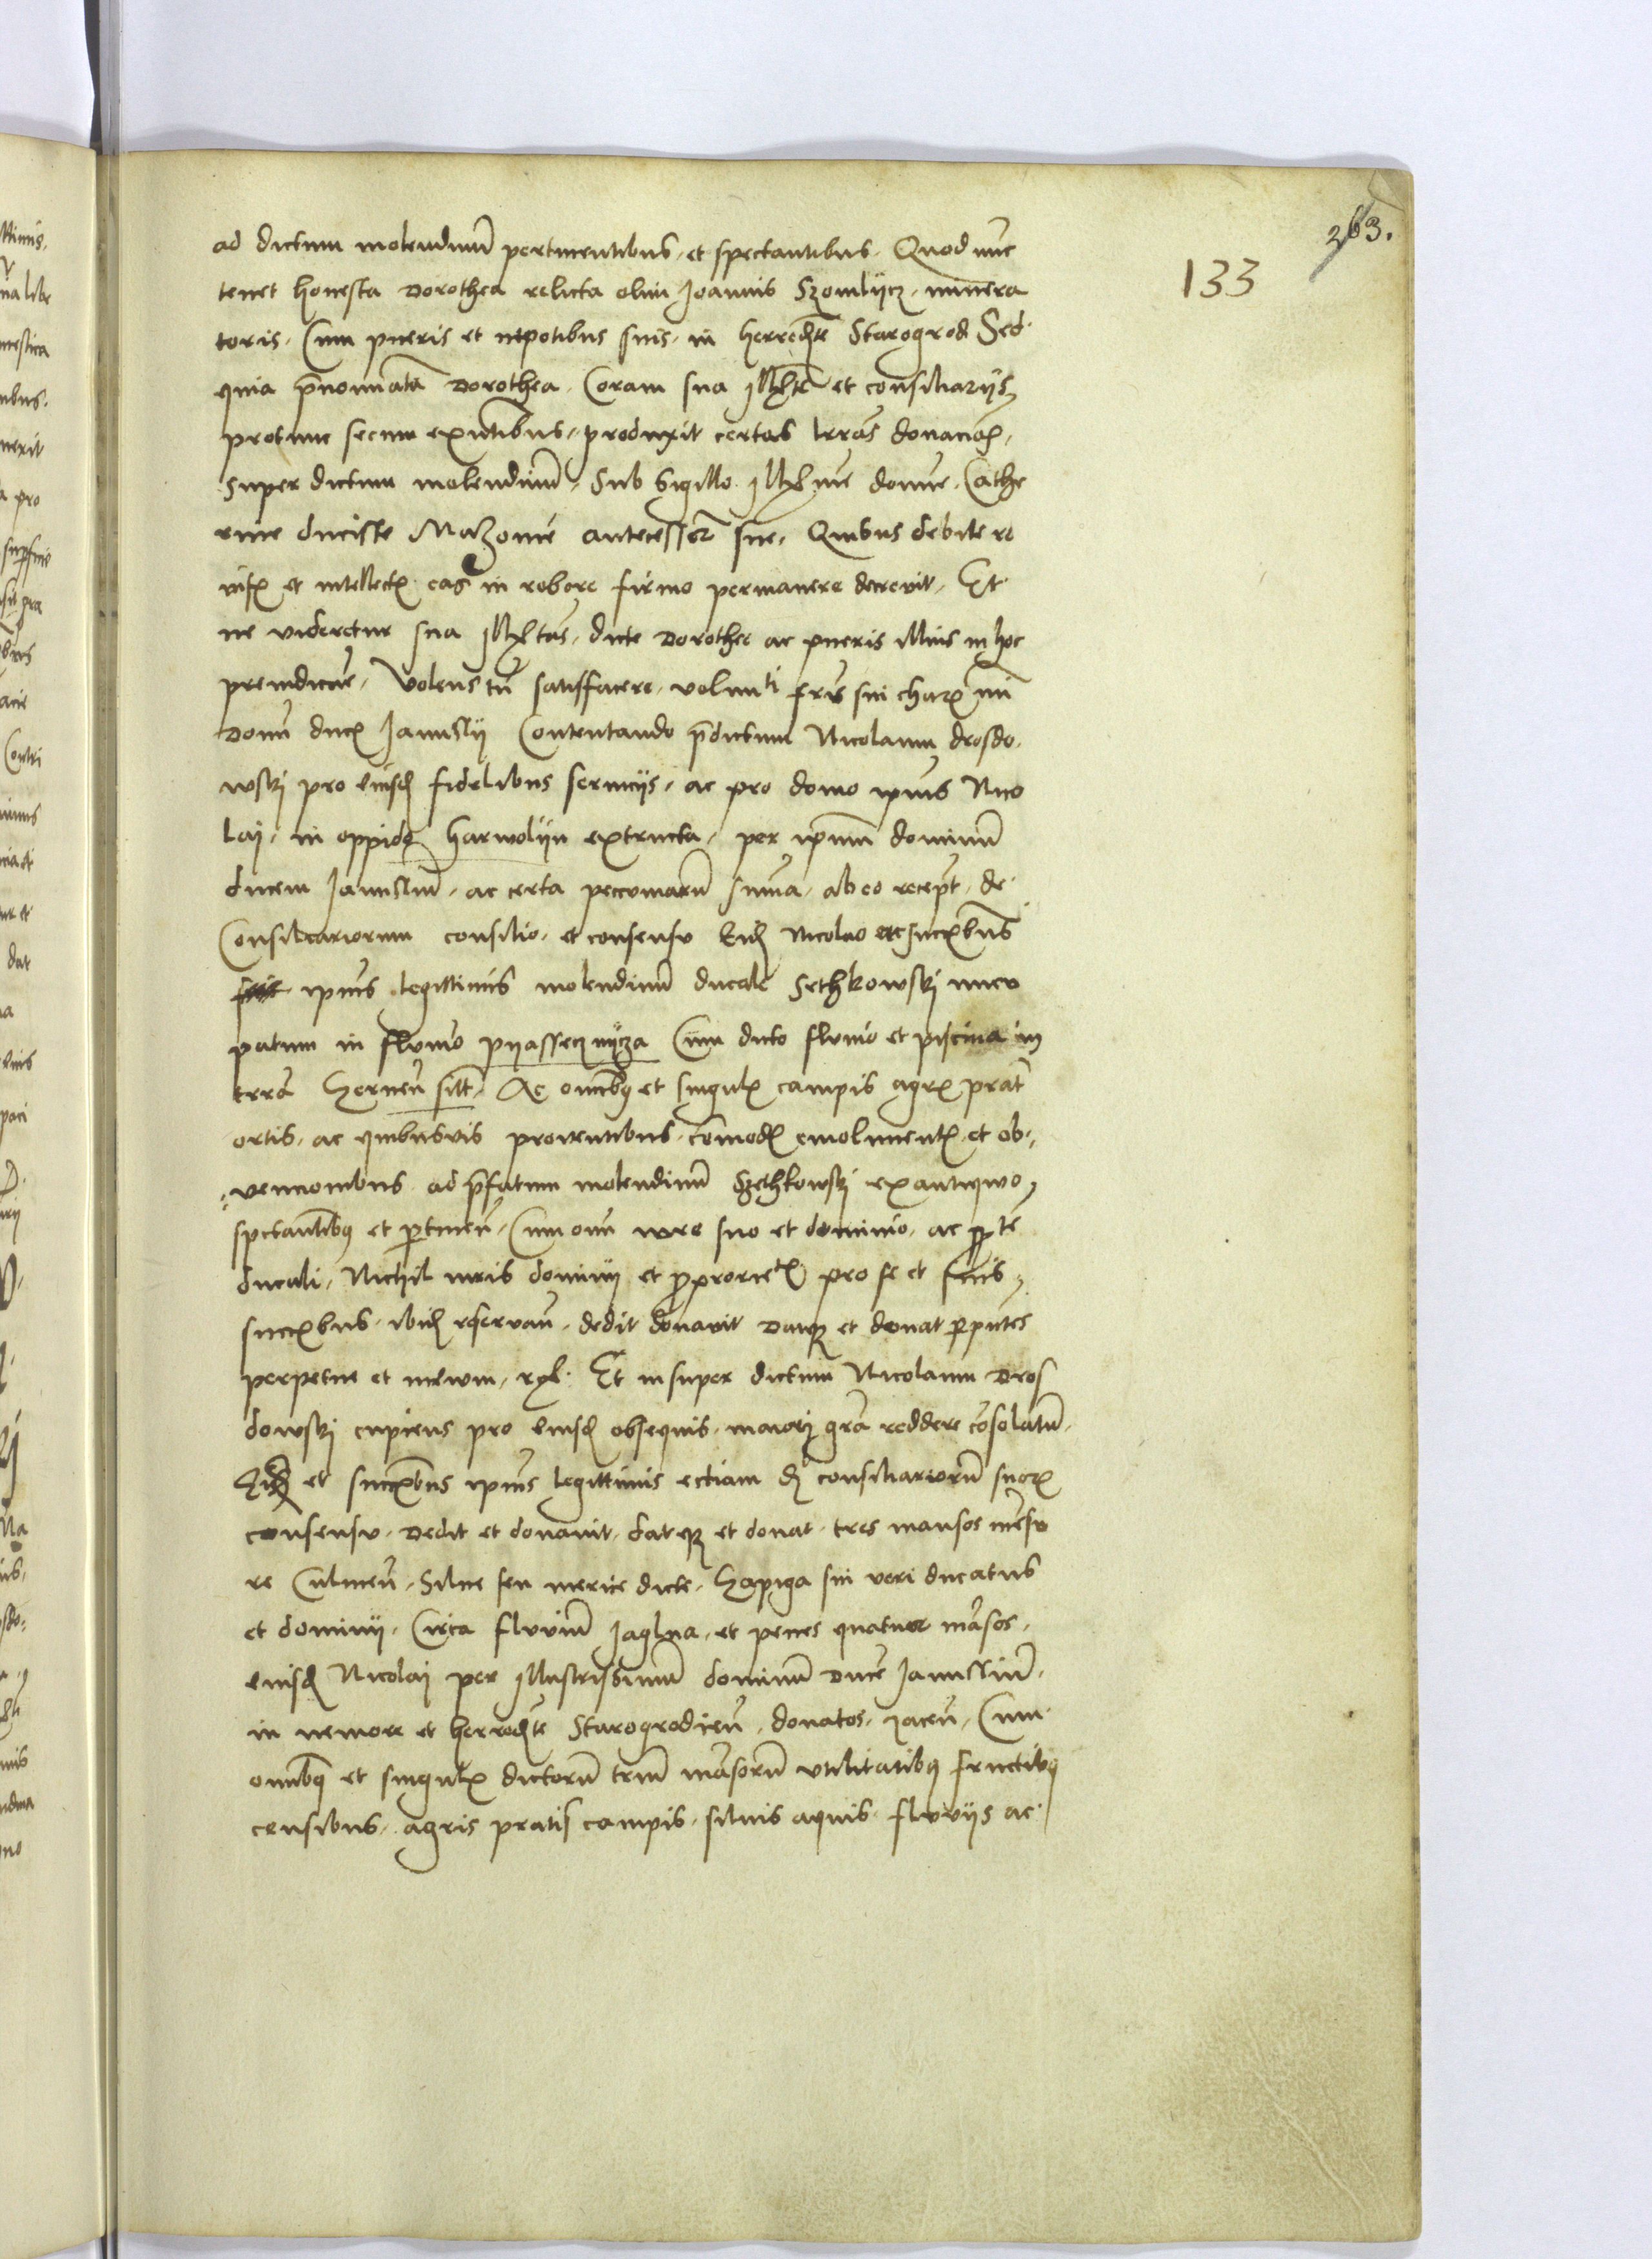 263.
133
ad dictum molendinũ pertinentibus et spectantibus. Quod nunc
tenet honesta Dorothea relicta olim Joannis Szomlijcz minera
toris. Cum pueris et nepotibus suis in herredte Starogrod Sed
quia p̃nominatã Dorothea Coram sua Illte et consiliarijs
protunc secum exñtibus produxit certas lrãs donacio
super dictum molendinũ Sub Sigillo Illme domne Cathe
rine ducisse Mazouie antecessor sue. Quibus debite re
vis et intellect eas in robore firmo permanere decrevit. Et
ne videretur sua Illtas dicte Dorothee ac pueris illius in hoc
preiudicare. Volens tñ satisffacere volunti fris sui charmi
Domi ducis Janussij Contentando p̃dictum Nicolaum drosdo
wskj pro eiusd fidelibus seruicijs ac pro domo ipius Nico
laj in oppido harwolijn extructa per ipmm dominũ
ducem Janussiũ ac certa peccuniarũ sũma ab eo recept de
Consiliariorum consilio et consensu Eid Nicolao eiusc succbus
ipius legittimis molendinũ ducale Sethkowskj nuncu
patum in fluuio pijassecznijcza Cum dicto fluuio et piscina in
terra Cerneñ sitt Ac omibq et singul campis agr prat
ortis ac quibusuis prouentibus comod emolument et ob
vencionibus ad p̃fatum molendinũ Szethkowskj ex antiquo
spectantibq et ptineñ Cum omi iure suo et dominio ac ppte
ducali Nichil iuris dominij et proprietat pro se et suis
succbus ibid reseruañ dedit donauit Datq et donat p pntes
perpetue et in ewum rgl. Et insuper dictum Nicolaum Dros
dowskj cupiens pro eiusd obsequiis maiorj grã reddere cõsolatũ
Eid et succbus ipius legittimis ectiam d consiliariorũ suor
consensu Dedit et donauit datq et donat tres mansos mẽsu
re Culmeñ Silue seu merice dicte Chapiga sui veri ducatus
et dominij Circa fluuiũ Jaglna et penes quatuor mãsos
eiusd Nicolaj per Illustrissimũ dominũ Ducẽ Janussiũ
in nemore et herredte Starogrodieñ donatos iaceñ Cum
omibq et singul dictorũ triũ mãsorũ vtilitatibq fructibq
censibus agris pratis campis siluis aquis fluuijs ac